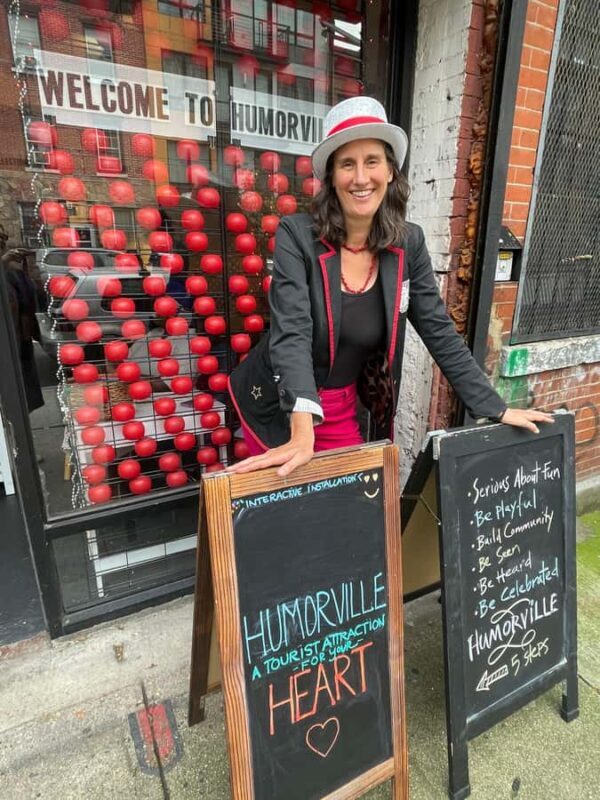 WELCOME TO HUMORVI
INTERACTIVE INSTALLATIONS
HUMORVILLE
A TOURIST ATTRACTION
-FOR YOUR-
HEART
• Serious About Fun
• Be Playful
• Build Community
• Be Seen
• Be Heard
• Be Celebrated
HUMORVILLE
5 steps